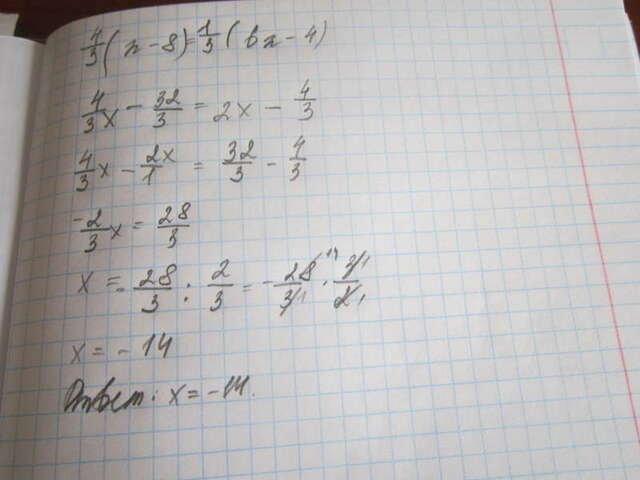 4/3 (x - 8) = 1/3 (6x - 4)
4/3 x - 32/3 = 2x - 4/3
4/3 x - 2/1 x = 32/3 - 4/3
-2/3 x = 28/3
x = -28/3 : 2/3 = -28/3 · 3/2
x = - 14
Ответ: x = -14.